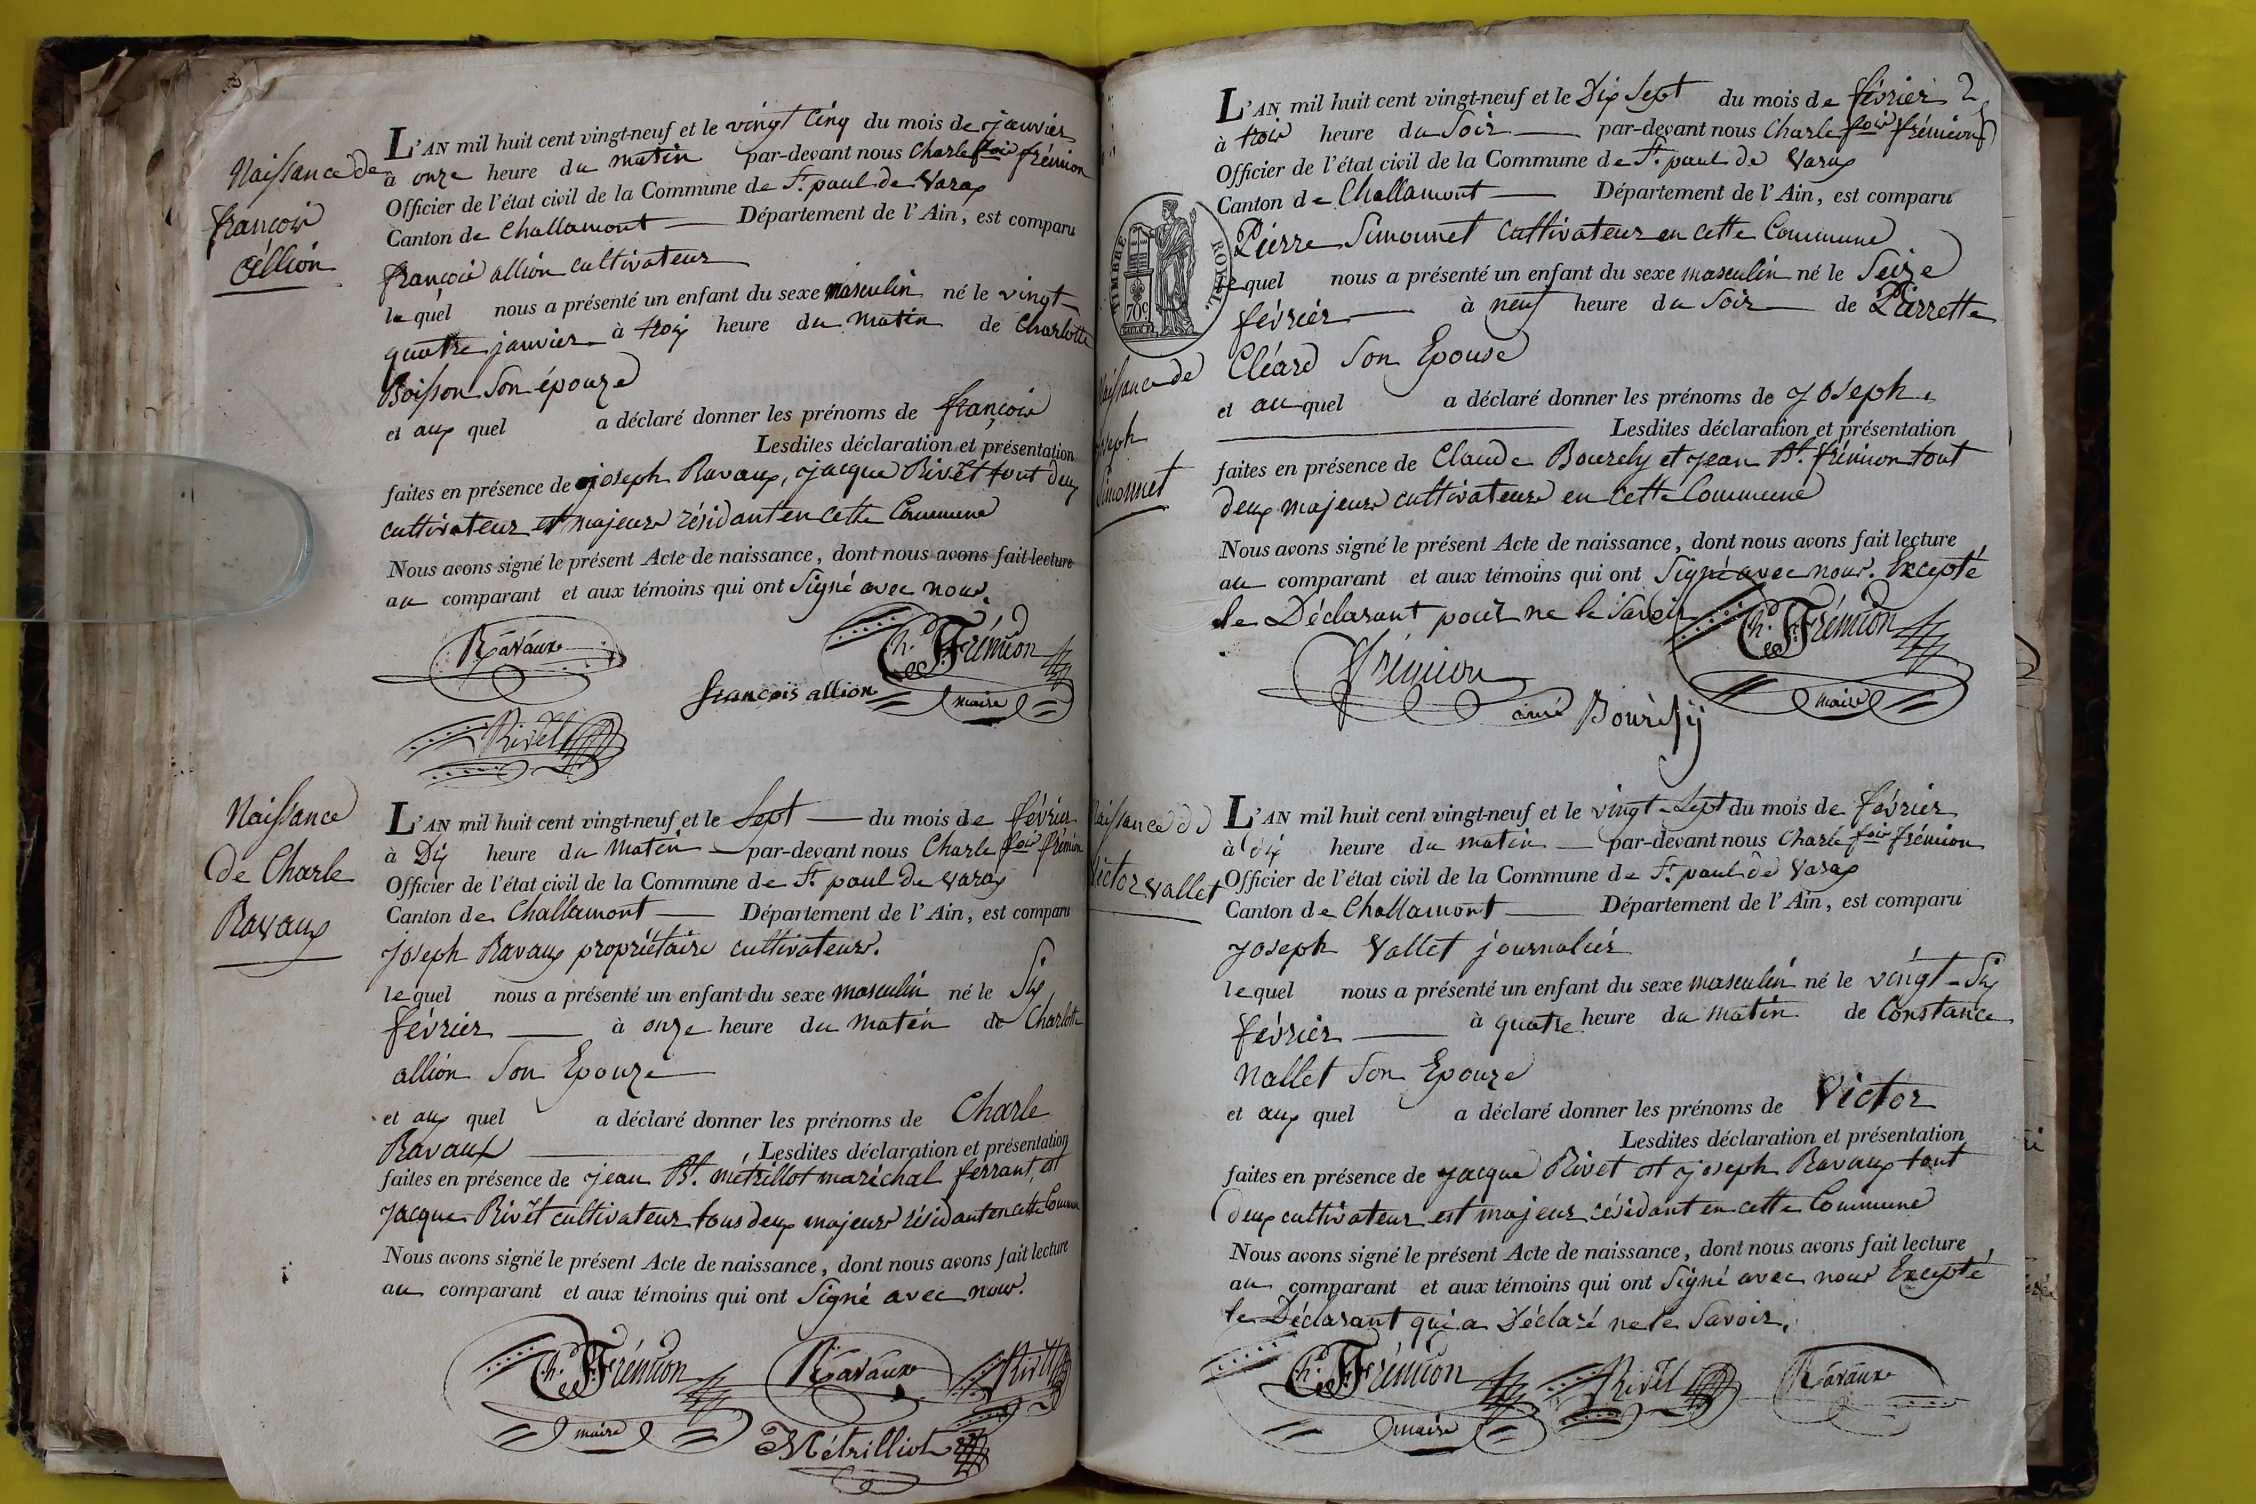 Naissance de
françois
allion
L'AN mil huit cent vingt-neuf et le vingt cinq du mois de janvier
à onze heure du matin par-devant nous Charle fois frémion
Officier de l'état civil de la Commune de St. paul de Varax
Canton de Challamont Département de l'Ain, est comparu
françois allion cultivateur
lequel nous a présenté un enfant du sexe masculin né le vingt
quatre janvier à trois heure du matin de Charlotte
Boisson Son épouze
et aux quel a déclaré donner les prénoms de françois
Lesdites déclaration et présentation
faites en présence de joseph Ravaux, jacque Rivet tout deux
cultivateur et majeurs résidant en cette Commune
Nous avons signé le présent Acte de naissance, dont nous avons fait lecture
au comparant et aux témoins qui ont Signé avec nous.
Ravaux
Ch. Frémion
françois allion
maire
Rivet
Naissance
de Charle
Ravaux
L'AN mil huit cent vingt-neuf et le Sept du mois de février
à Dix heure du Matin par-devant nous Charle fois frémion
Officier de l'état civil de la Commune de St. paul de Varax
Canton de Challamont Département de l'Ain, est comparu
joseph Ravaux propriétaire cultivateur.
lequel nous a présenté un enfant du sexe masculin né le Six
février à onze heure du Matin de Charlotte
allion Son Epouze
et aux quel a déclaré donner les prénoms de Charle
Ravaux Lesdites déclaration et présentation
faites en présence de jean Bt. métrillot maréchal ferrant, et
jacque Rivet cultivateur tous deux majeurs résidant en cette Commune
Nous avons signé le présent Acte de naissance, dont nous avons fait lecture
au comparant et aux témoins qui ont Signé avec nous.
Ch. Frémion
Ravaux
Rivet
maire
Métrilliot
TIMBRE ROYAL
70c
Naissance de
joseph
Simonnet
L'AN mil huit cent vingt-neuf et le Dix Sept du mois de février
à trois heure du Soir par-devant nous Charle fois frémion
Officier de l'état civil de la Commune de St. paul de Varax
Canton de Challamont Département de l'Ain, est comparu
Pierre Simonnet cultivateur en cette Commune
lequel nous a présenté un enfant du sexe masculin né le Seize
février à neuf heure du Soir de Pierrette
Cléard Son Epouse
et au quel a déclaré donner les prénoms de joseph.
Lesdites déclaration et présentation
faites en présence de Claude Bourcly et jean Bt. frémion tout
deux majeurs cultivateurs en cette Commune
Nous avons signé le présent Acte de naissance, dont nous avons fait lecture
au comparant et aux témoins qui ont Signé avec nous. Excepté
le Déclarant pour ne le Savoir
Ch. Frémion
Frémion
maire
Naissance de
Victor Vallet
L'AN mil huit cent vingt-neuf et le vingt-Sept du mois de février
à dix heure du matin par-devant nous Charle fois frémion
Officier de l'état civil de la Commune de St. paul de Varax
Canton de Challamont Département de l'Ain, est comparu
joseph Vallet journalier
lequel nous a présenté un enfant du sexe masculin né le vingt-Six
février à quatre heure du matin de Constance
Nallet Son Epouze
et aux quel a déclaré donner les prénoms de Victor
Lesdites déclaration et présentation
faites en présence de jacque Rivet et joseph Ravaux tout
deux cultivateur et majeur résidant en cette Commune
Nous avons signé le présent Acte de naissance, dont nous avons fait lecture
au comparant et aux témoins qui ont Signé avec nous Excepté
le Déclarant qui a Déclaré ne le Savoir.
Ch. Frémion
Rivet
Ravaux
maire